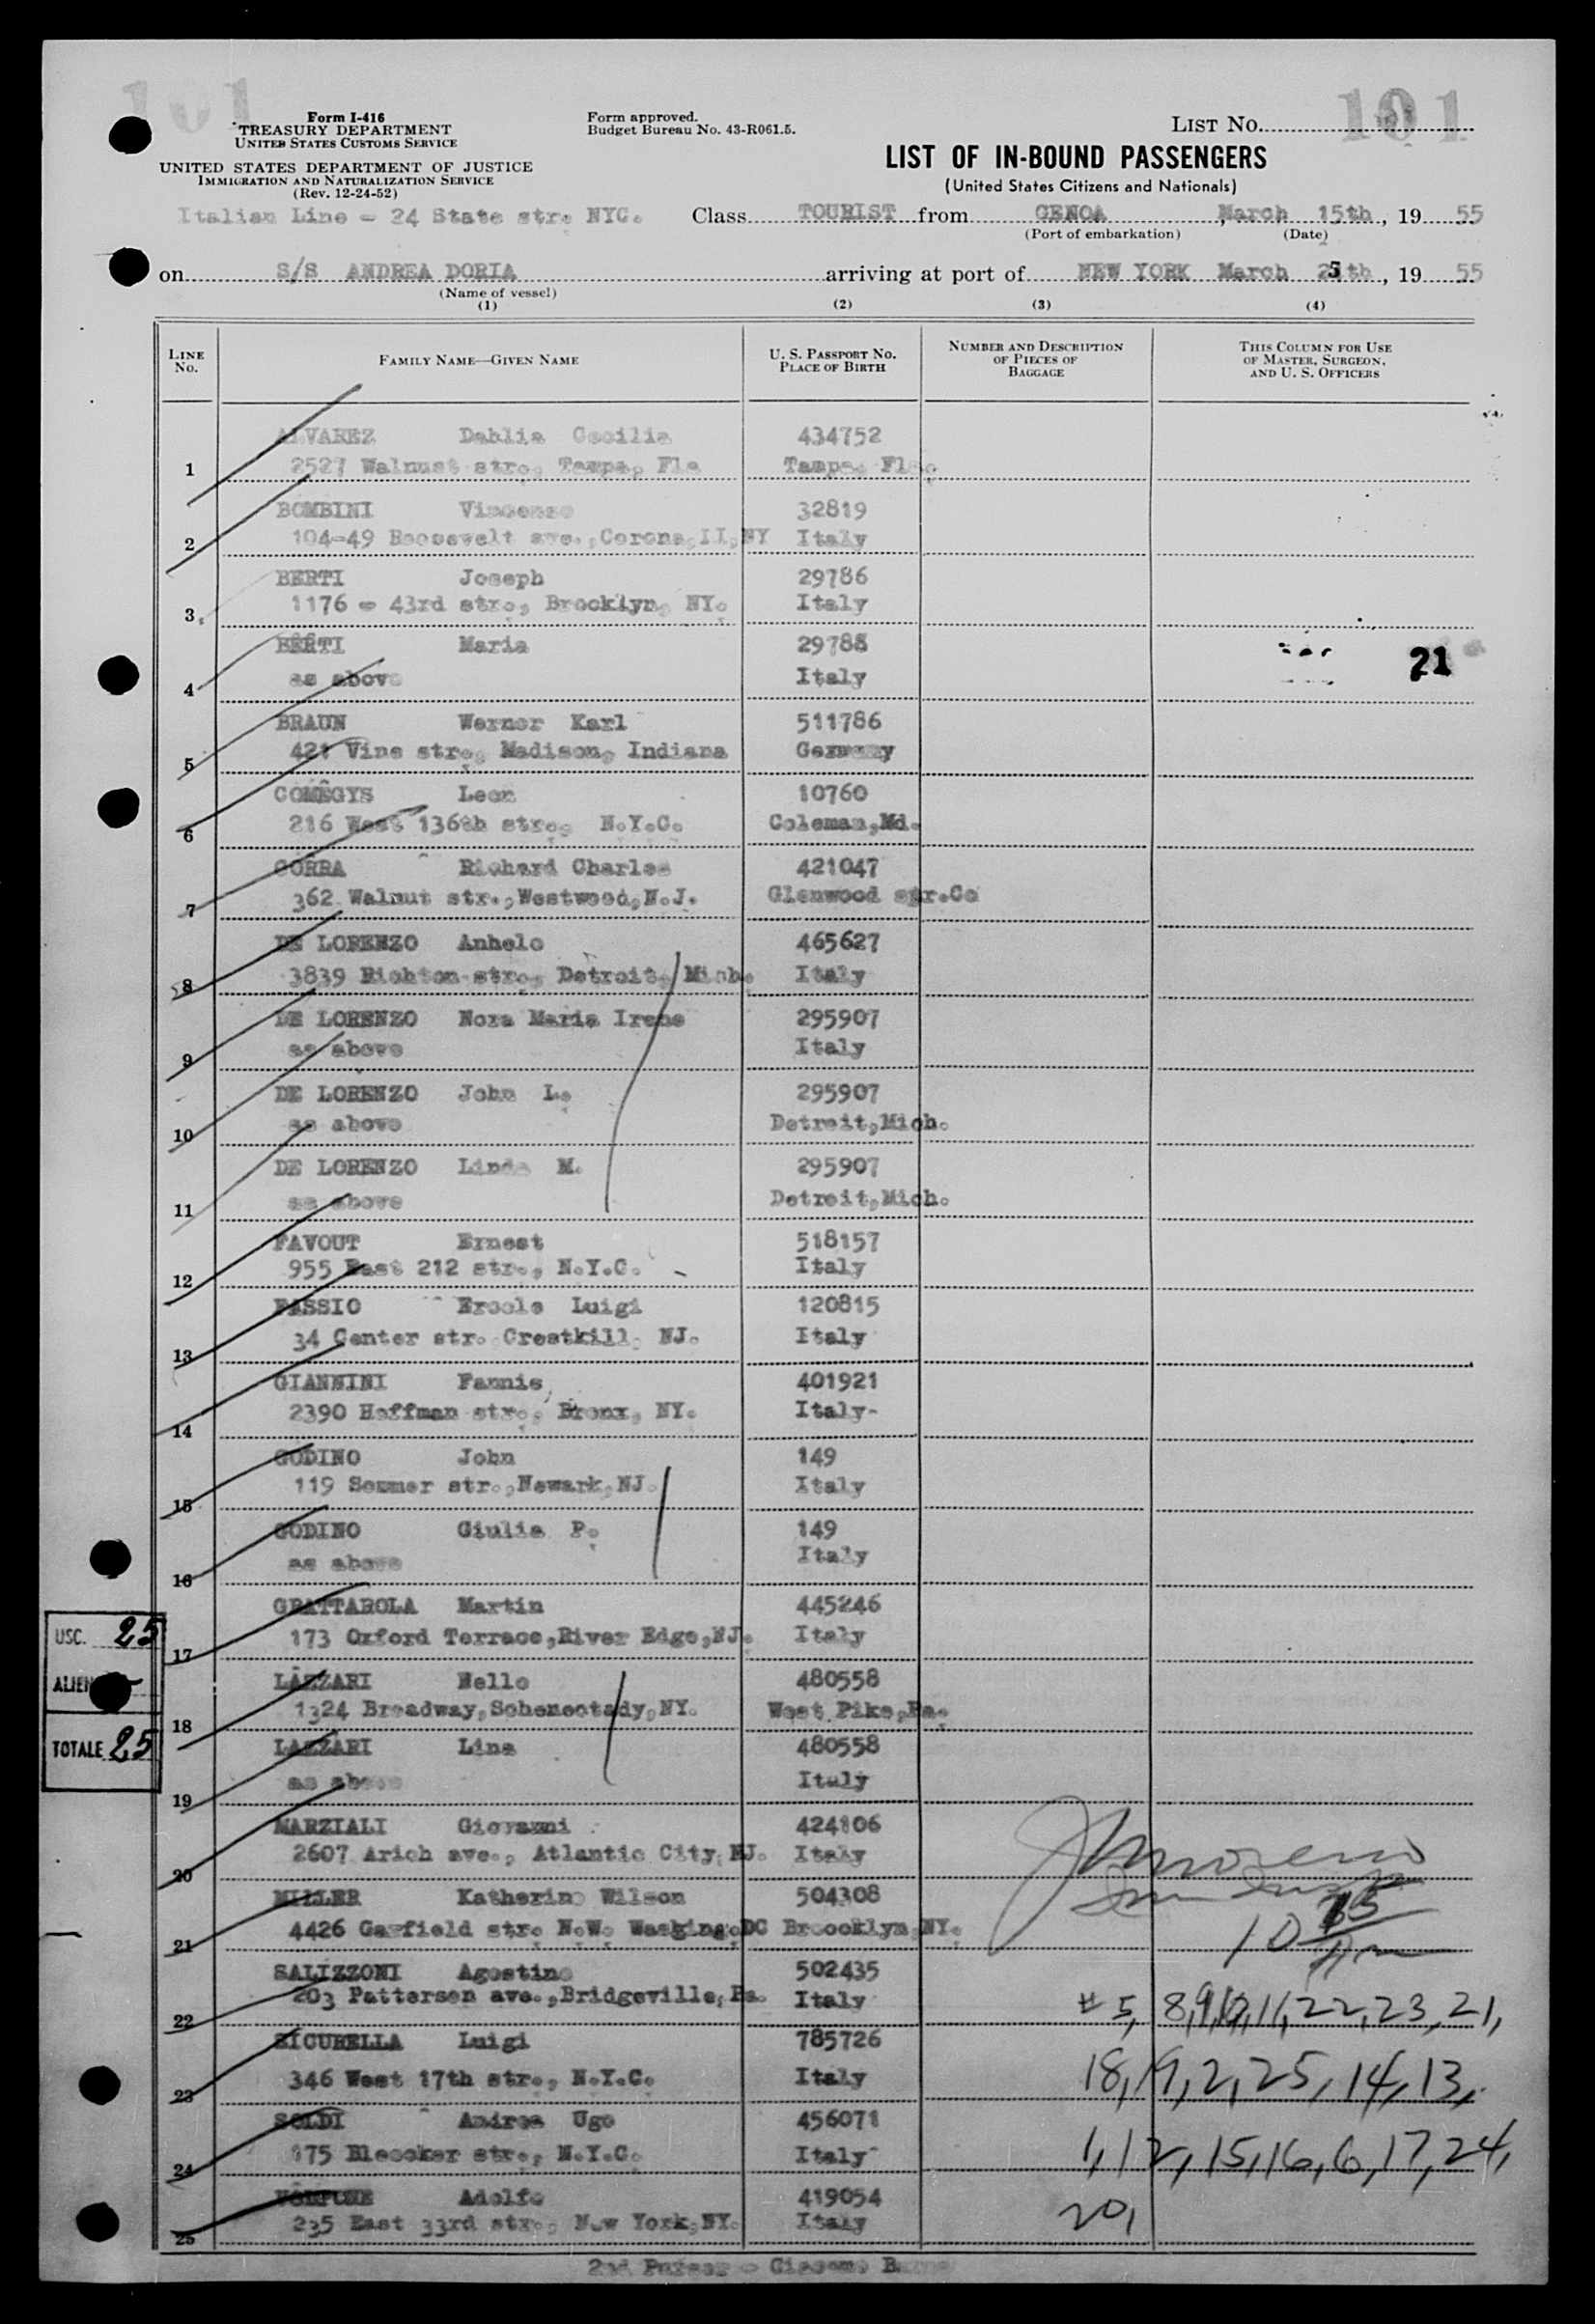 101
101
Form I-416
TREASURY DEPARTMENT
UNITED STATES CUSTOMS SERVICE
Form approved.
Budget Bureau No. 43-R061.5.
LIST NO.
UNITED STATES DEPARTMENT OF JUSTICE
IMMIGRATION AND NATURALIZATION SERVICE
(Rev. 12-24-52)
LIST OF IN-BOUND PASSENGERS
(United States Citizens and Nationals)
Italian Line - 24 State str. NYC.
Class TOURIST from GENOA, March 15th, 19 55
(Port of embarkation) (Date)
on S/S ANDREA DORIA arriving at port of NEW YORK March 25th, 19 55
(Name of vessel)
(1) (2) (3) (4)
LINE NO. FAMILY NAME—GIVEN NAME U. S. PASSPORT NO. PLACE OF BIRTH NUMBER AND DESCRIPTION OF PIECES OF BAGGAGE THIS COLUMN FOR USE OF MASTER, SURGEON, AND U. S. OFFICERS
ALVAREZ Dahlia Cecilia 434752
1 2527 Walnust str., Tampa, Fla Tampa, Fla.
BOMBINI Vincenzo 32819
2 104-49 Roosevelt ave., Corona, II, NY Italy
BERTI Joseph 29786
3 1176 - 43rd str., Brooklyn, NY. Italy
BERTI Maria 29788
4 as above Italy
21
BRAUN Werner Karl 511786
5 421 Vine str., Madison, Indiana Germany
COMEGYS Leon 10760
6 216 West 136th str., N.Y.C. Coleman, Md.
CORRA Richard Charles 421047
7 362 Walnut str., Westwood, N.J. Glenwood spr.Co
DE LORENZO Anhelo 465627
8 3839 Richton str., Detroit, Mich. Italy
DE LORENZO Nora Maria Irene 295907
9 as above Italy
DE LORENZO John L. 295907
10 as above Detroit, Mich.
DE LORENZO Linda M. 295907
11 as above Detroit, Mich.
FAVOUT Ernest 518157
12 955 East 212 str., N.Y.C. Italy
FASSIO Ercole Luigi 120815
13 34 Center str. Crestkill, NJ. Italy
GIANNINI Fannie 401921
14 2390 Hoffman str., Bronx, NY. Italy-
GODINO John 149
15 119 Sommer str., Newark, NJ. Italy
GODINO Giulia P. 149
16 as above Italy
GRATTAROLA Martin 445246
17 173 Oxford Terrace, River Edge, NJ. Italy
USC. 25
ALIEN
TOTALE 25
LAZZARI Nello 480558
18 1324 Broadway, Schenectady, NY. West Pike, Pa.
LAZZARI Lina 480558
19 as above Italy
MARZIALI Giovanni 424106
20 2607 Arich ave., Atlantic City, NJ. Italy
MILLER Katherine Wilson 504308
21 4426 Garfield str. N.W. Washing. DC Broocklyn, NY.
10
SALIZZONI Agostino 502435
22 203 Patterson ave., Bridgeville, Pa. Italy
# 5, 8, 9, 10, 11, 22, 23, 21,
SICURELLA Luigi 785726
23 346 West 17th str., N.Y.C. Italy
18, 19, 2, 25, 14, 13,
SOLDI Andrea Ugo 456071
24 175 Bleecker str., N.Y.C. Italy
1, 12, 15, 16, 6, 17, 24,
Adolfo 419054
25 235 East 33rd str., New York, NY. Italy
20,
2nd Purser - Giacomo